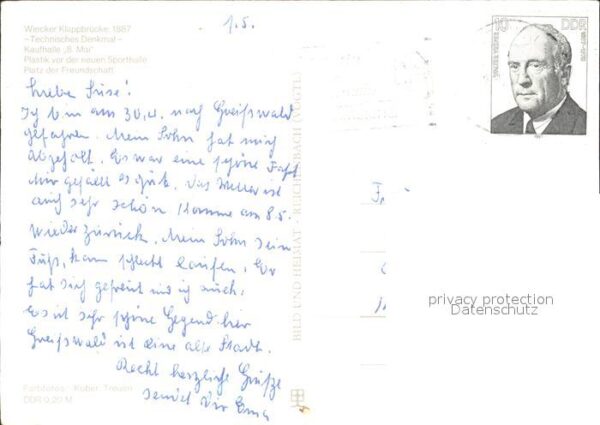 Wiecker Klappbrücke, 1887
–Technisches Denkmal–
Kaufhalle „8. Mai"
Plastik vor der neuen Sporthalle
Platz der Freundschaft
1.5.
Liebe Suse!
Ich bin am 30.4. nach Greifswald
gefahren. Mein Sohn hat mich
abgeholt. Es war eine schöne Fahrt
Mir gefällt es gut. Das Wetter ist
auch sehr schön Komme am 8.5.
wieder zurück. Mein Sohn sein
Fuß, kann schlecht laufen. Er
hat sich gefreut und ich auch.
Es ist sehr schöne Gegend hier
Greifswald ist eine alte Stadt.
Recht herzliche Grüße
sendet Dir Erna
Farbfotos: Kuber, Treuen
DDR 0,20 M
BILD UND HEIMAT REICHENBACH (VOGTL)
10 DDR
privacy protection
Datenschutz